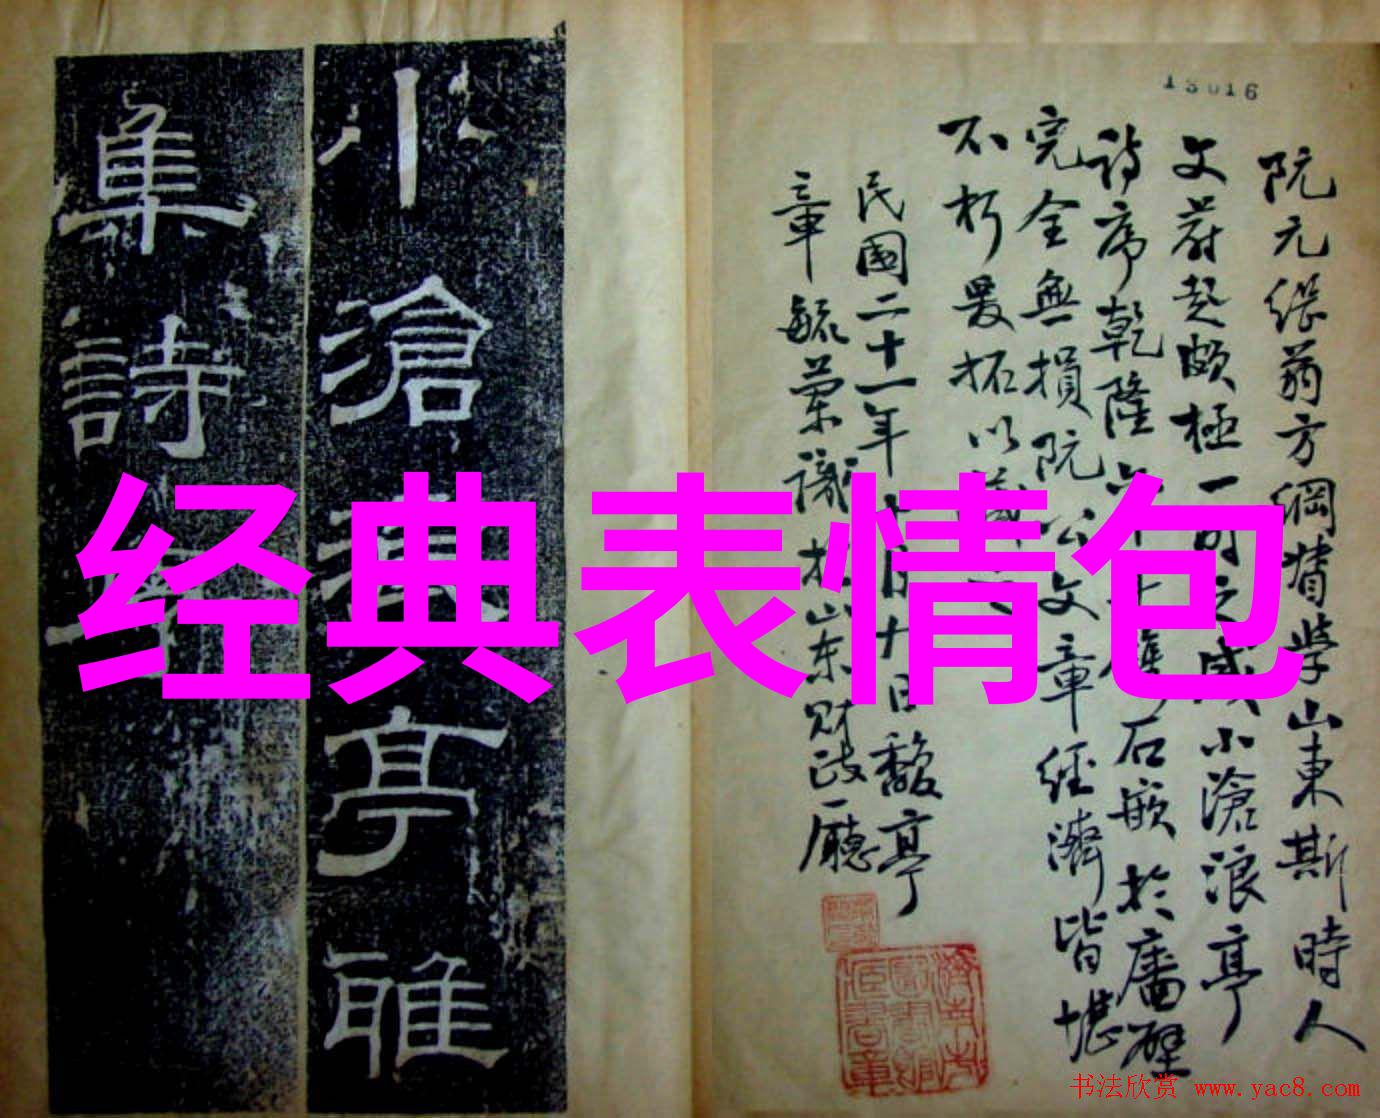 13016
阮元继翁方綱督学山東斯時人
文蔚起頗極一时之盛小滄浪亭
诗序乾隆石嵌於廧壁
完全無損阮公文章經濟皆堪
不朽爰拓以
民國二十一年九日馥亭
章毓蘭識於山东财政廳
小滄浪亭雅
集詩序
经典表情包
书法欣赏 www.yac8.com